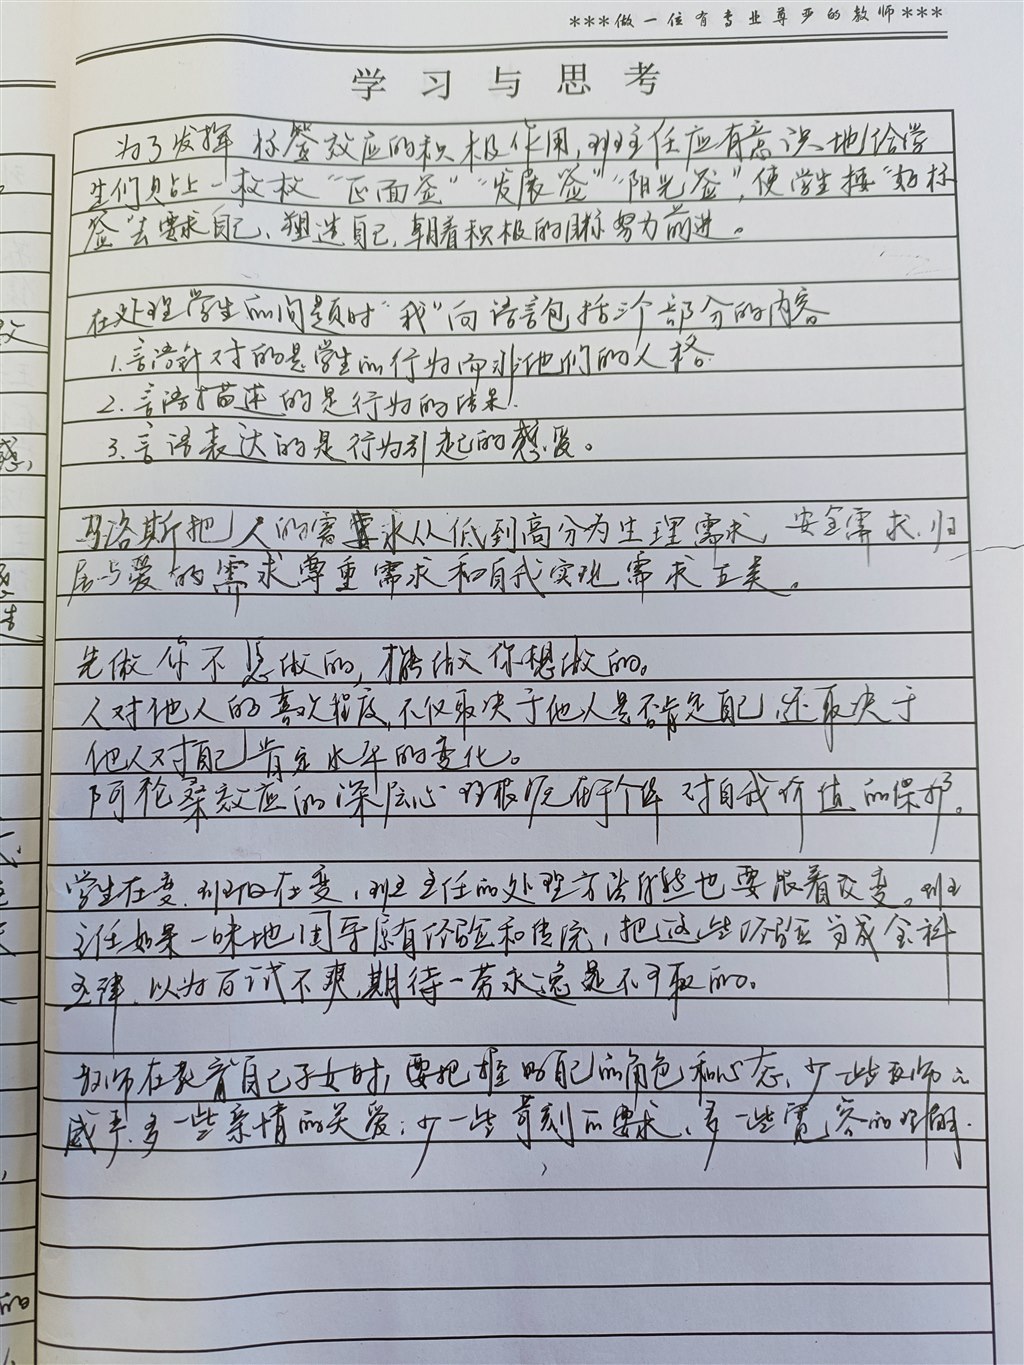 ***做一位有专业尊严的教师***
学习与思考
为了发挥标签效应的积极作用,班主任应有意识地给学
生们贴上一枚枚“正面签”“发展签”“阳光签”,使学生按“好标
签”去要求自己、塑造自己,朝着积极的目标努力前进。
在处理学生的问题时“我”向语言包括三个部分的内容
1.言语针对的是学生的行为而非他们的人格.
2.言语描述的是行为的结果.
3.言语表达的是行为引起的感受。
马洛斯把人的需求从低到高分为生理需求、安全需求、归
属与爱的需求尊重需求和自我实现需求五类。
先做你不想做的,才能做你想做的。
人对他人的喜欢程度,不仅取决于他人是否肯定自己,还取决于
他人对自己肯定水平的变化。
阿伦森效应的深层心理根源在于个体对自我价值的保护。
学生在变,班级在变,班主任的处理方法自然也要跟着改变。班
主任如果一味地囿于原有经验和传统,把这些经验当成金科
玉律,以为百试不爽,期待一劳永逸是不可取的。
教师在教育自己子女时,要把握好自己的角色和心态,少一些教师之
威严,多一些亲情的关爱;少一些苛刻的要求,多一些宽容的理解.